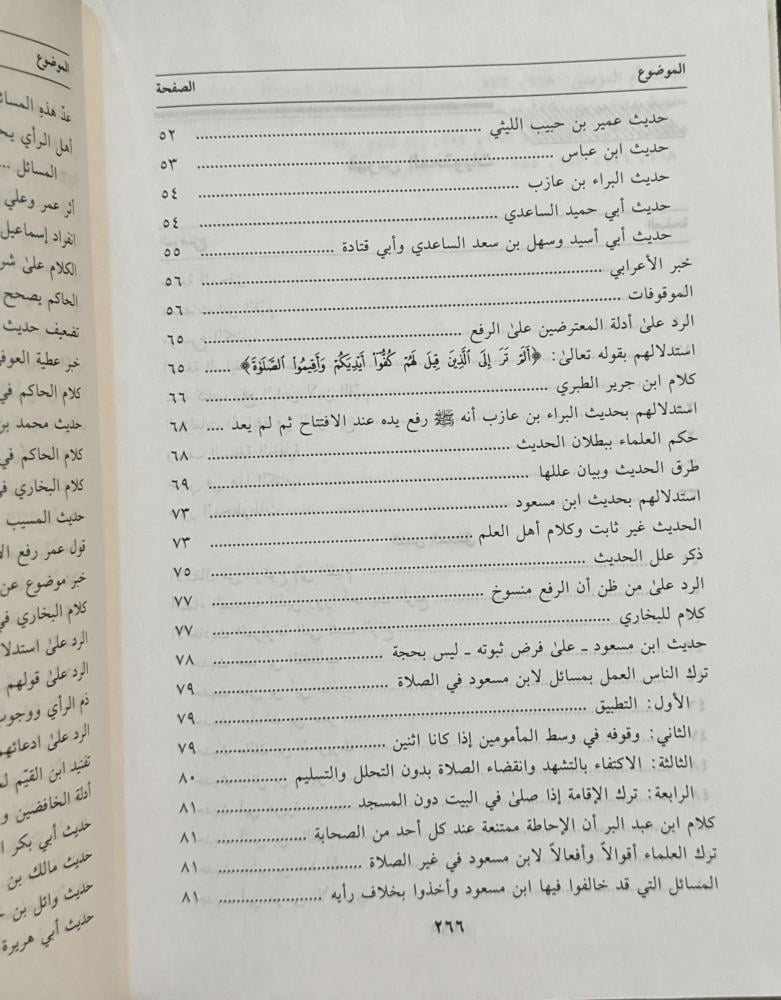 الموضوع الصفحة
حديث عمير بن حبيب الليثي ........ ٥٢
حديث ابن عباس ........ ٥٣
حديث البراء بن عازب ........ ٥٤
حديث أبي حميد الساعدي ........ ٥٤
حديث أبي أسيد وسهل بن سعد الساعدي وأبي قتادة ........ ٥٥
خبر الأعرابي ........ ٥٦
الموقوفات ........ ٥٦
الرد على أدلة المعترضين على الرفع ........ ٦٥
استدلالهم بقوله تعالىٰ: ﴿أَلَمْ تَرَ إِلَى ٱلَّذِينَ قِيلَ لَهُمْ كُفُّوٓا۟ أَيْدِيَكُمْ وَأَقِيمُوا۟ ٱلصَّلَوٰةَ﴾ ...... ٦٥
كلام ابن جرير الطبري ........ ٦٦
استدلالهم بحديث البراء بن عازب أنه ﷺ رفع يده عند الافتتاح ثم لم يعد .... ٦٨
حكم العلماء ببطلان الحديث ........ ٦٨
طرق الحديث وبيان عللها ........ ٦٩
استدلالهم بحديث ابن مسعود ........ ٧٣
الحديث غير ثابت وكلام أهل العلم ........ ٧٣
ذكر علل الحديث ........ ٧٥
الرد علىٰ من ظن أن الرفع منسوخ ........ ٧٧
كلام للبخاري ........ ٧٧
حديث ابن مسعود ـ علىٰ فرض ثبوته ـ ليس بحجة ........ ٧٨
ترك الناس العمل بمسائل لابن مسعود في الصلاة ........ ٧٩
الأول: التطبيق ........ ٧٩
الثاني: وقوفه في وسط المأمومين إذا كانا اثنين ........ ٧٩
الثالثة: الاكتفاء بالتشهد وانقضاء الصلاة بدون التحلل والتسليم ........ ٨٠
الرابعة: ترك الإقامة إذا صلىٰ في البيت دون المسجد ........ ٨١
كلام ابن عبد البر أن الإحاطة ممتنعة عند كل أحد من الصحابة ........ ٨١
ترك العلماء أقوالاً وأفعالاً لابن مسعود في غير الصلاة ........ ٨١
المسائل التي قد خالفوا فيها ابن مسعود وأخذوا بخلاف رأيه ........ ٨١
٢٦٦
الموضوع
عدّ هذه
أهل الرأي
المسائل ...
أثر عمر وعلي
انفراد إسماعيل
الكلام علىٰ
الحاكم يصحح
تضعيف حديث
خبر عطية
كلام الحاكم في
حديث محمد
كلام الحاكم في
كلام البخاري
حديث المسيب
قول عمر رفع
خبر موضوع عن
كلام البخاري
الرد علىٰ
الرد علىٰ قولهم
ذم الرأي
الرد علىٰ
تفنيد ابن القيّم
أدلة الخافضين
حديث أبي بكر
حديث مالك بن
حديث وائل بن
حديث أبي هريرة